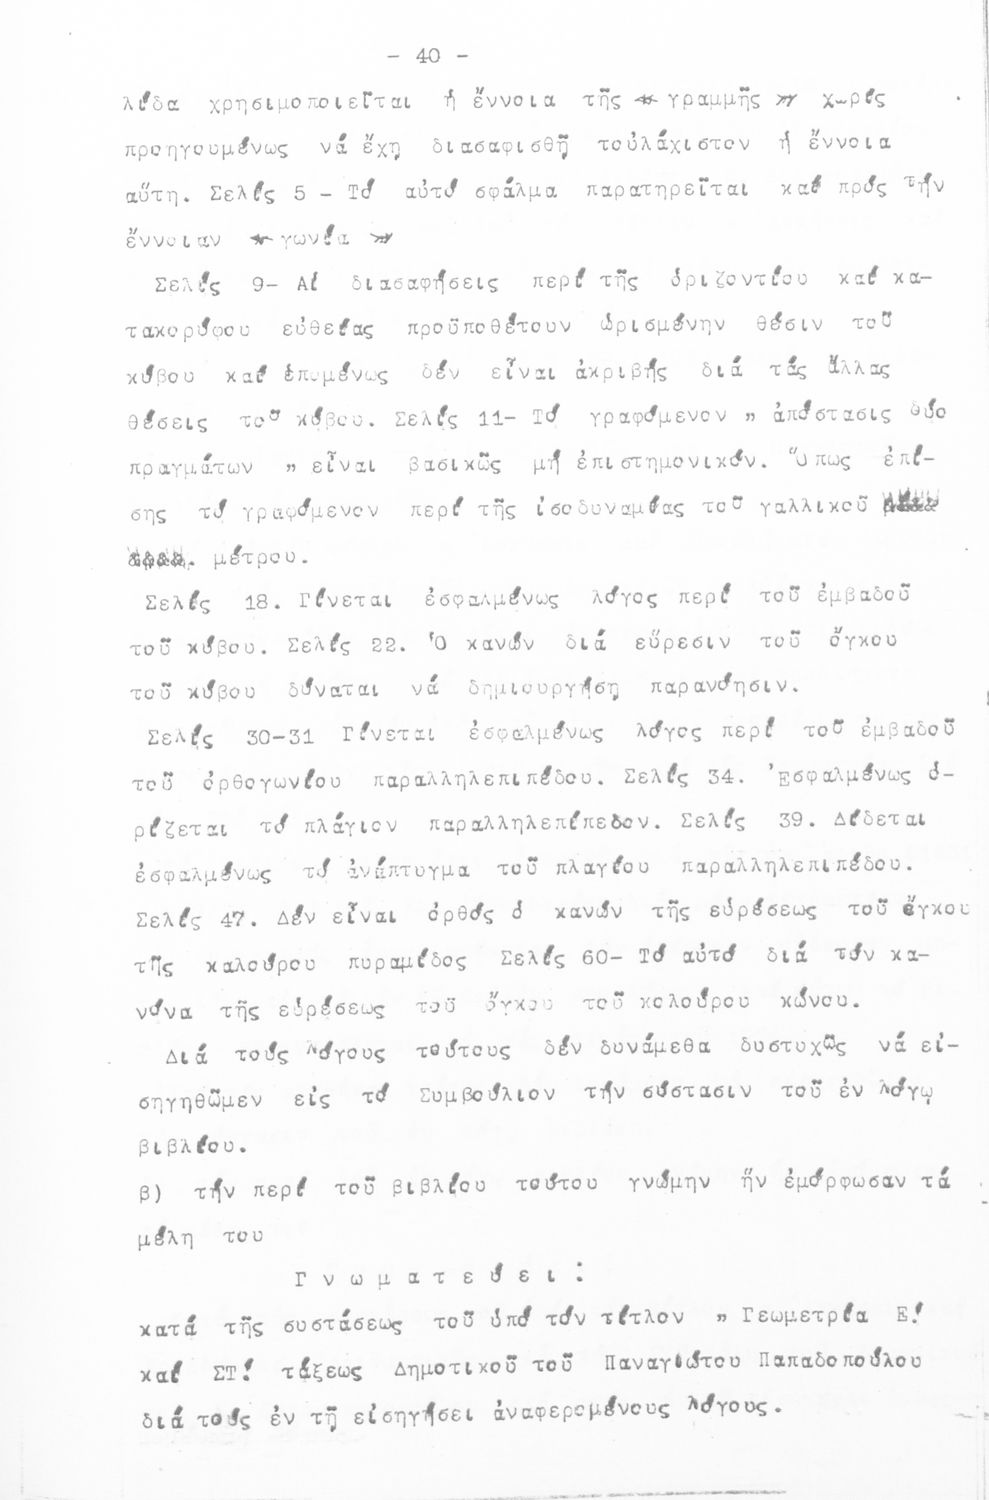 - 40 -
λίδα χρησιμοποιεῖται ἡ ἔννοια τῆς « γραμμῆς » χωρίς
προηγουμένως νά ἔχῃ διασαφισθῇ τοὐλάχιστον ἡ ἔννοια
αὕτη. Σελίς 5 - Τό αὐτό σφάλμα παρατηρεῖται καί πρός τήν
ἔννοιαν « γωνία »
Σελίς 9- Αἱ διασαφήσεις περί τῆς ὁριζοντίου καί κα-
τακορύφου εὐθείας προϋποθέτουν ὡρισμένην θέσιν τοῦ
κύβου καί ἑπομένως δέν εἶναι ἀκριβής διά τάς ἄλλας
θέσεις τοῦ κύβου. Σελίς 11- Τό γραφόμενον " ἀπόστασις δύο
πραγμάτων " εἶναι βασικῶς μή ἐπιστημονικόν. Ὅπως ἐπί-
σης τό γραφόμενον περί τῆς ἰσοδυναμίας τοῦ γαλλικοῦ
μέτρου.
Σελίς 18. Γίνεται ἐσφαλμένως λόγος περί τοῦ ἐμβαδοῦ
τοῦ κύβου. Σελίς 22. Ὁ κανών διά εὕρεσιν τοῦ ὄγκου
τοῦ κύβου δύναται νά δημιουργήσῃ παρανόησιν.
Σελίς 30-31 Γίνεται ἐσφαλμένως λόγος περί τοῦ ἐμβαδοῦ
τοῦ ὀρθογωνίου παραλληλεπιπέδου. Σελίς 34. Ἐσφαλμένως ὁ-
ρίζεται τό πλάγιον παραλληλεπίπεδον. Σελίς 39. Δίδεται
ἐσφαλμένως τό ἀνάπτυγμα τοῦ πλαγίου παραλληλεπιπέδου.
Σελίς 47. Δέν εἶναι ὀρθός ὁ κανών τῆς εὑρέσεως τοῦ ὄγκου
τῆς καλούρου πυραμίδος Σελίς 60- Τό αὐτό διά τόν κα-
νόνα τῆς εὑρέσεως τοῦ ὄγκου τοῦ κολούρου κώνου.
Διά τούς λόγους τούτους δέν δυνάμεθα δυστυχῶς νά εἰ-
σηγηθῶμεν εἰς τό Συμβούλιον τήν σύστασιν τοῦ ἐν λόγῳ
βιβλίου.
β) τήν περί τοῦ βιβλίου τούτου γνώμην ἥν ἐμόρφωσαν τά
μέλη του
Γ ν ω μ α τ ε ύ ε ι :
κατά τῆς συστάσεως τοῦ ὑπό τόν τίτλον " Γεωμετρία Ε!
καί ΣΤ! τάξεως Δημοτικοῦ τοῦ Παναγιώτου Παπαδοπούλου
διά τούς ἐν τῇ εἰσηγήσει ἀναφερομένους λόγους.